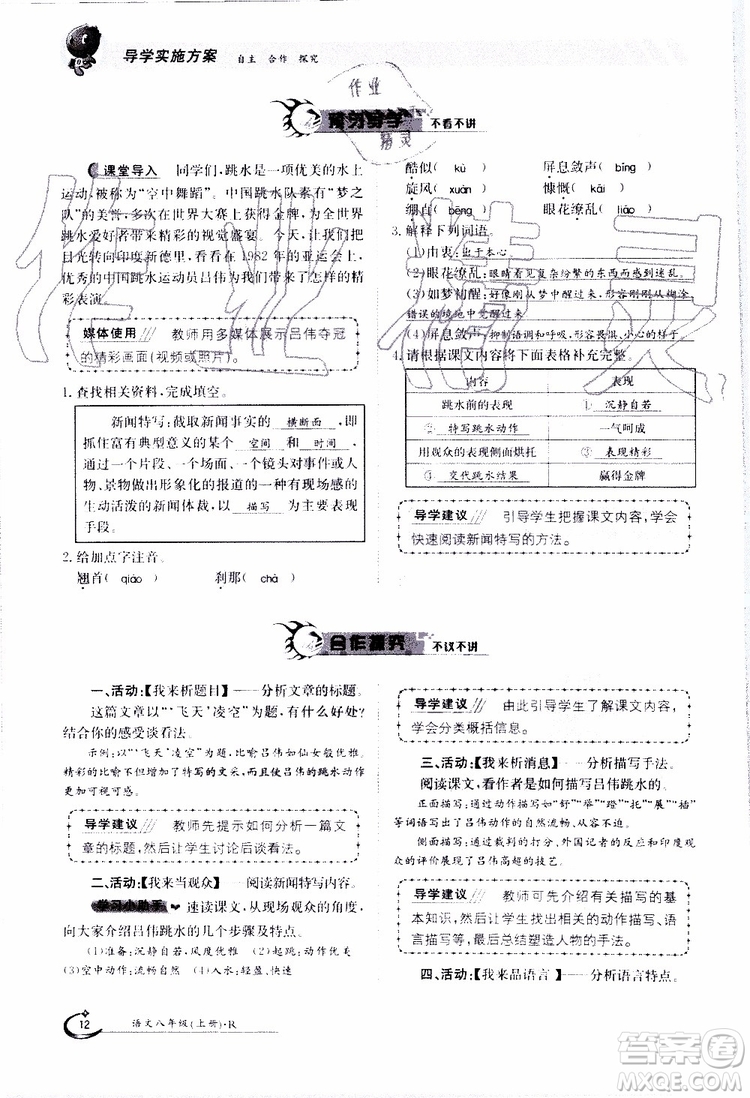 导学实施方案 自主 合作 探究
作业
精灵
不看不讲
课堂导入 同学们,跳水是一项优美的水上
运动,被称为“空中舞蹈”。中国跳水队素有“梦之
队”的美誉,多次在世界大赛上获得金牌,为世界
跳水爱好者带来精彩的视觉盛宴。今天,让我们把
目光转向印度新德里,看看在1982年的亚运会上,
优秀的中国跳水运动员吕伟为我们带来了怎样的精
彩表演。
媒体使用 教师用多媒体展示吕伟夺冠
的精彩画面(视频或照片)。
1.查找相关资料,完成填空。
新闻特写:截取新闻事实的 横断面 ,即
抓住富有典型意义的某个 空间 和 时间 ,
通过一个片段、一个场面、一个镜头对事件或人
物、景物做出形象化的报道的一种有现场感的
生动活泼的新闻体裁,以 描写 为主要表现
手段。
2.给加点字注音。
翘首( qiáo ) 刹那( chà )
酷似( kù ) 屏息敛声( bǐng )
旋风( xuàn ) 慷慨( kǎi )
绷直( bēng ) 眼花缭乱( liáo )
3.解释下列词语。
(1)由衷:出于本心。
(2)眼花缭乱:眼睛看见复杂纷繁的东西而感到迷乱。
(3)如梦初醒:好像刚从梦中醒过来,好像刚从糊涂、
错误的境地中觉醒过来。
(4)屏息敛声:抑制语调和呼吸,形容小心或关注。
4.请根据课文内容将下面表格补充完整。
内容 表现
跳水前的表现 ① 沉静自若
② 特写跳水动作 一气呵成
用观众的表现侧面烘托 ③ 表现精彩
④ 交代跳水结果 赢得金牌
导学建议 引导学生把握课文内容,学会
快速阅读新闻特写的方法。
合作探究 不议不讲
一、活动:【我来析题目】——分析文章的标题。
这篇文章以“‘飞天’凌空”为题,有什么好处?
结合你的感受谈看法。
示例:以“‘飞天’凌空”为题,比喻吕伟如仙女般优雅。
精彩的比喻不但增加了特写的文采,而且使吕伟的跳水动作
更加可视可感。
导学建议 教师先提示如何分析一篇文
章的标题,然后让学生讨论后谈看法。
二、活动:【我来当观众】——阅读新闻特写内容。
学习小助手 速读课文,从现场观众的角度,
向大家介绍吕伟跳水的几个步骤及特点。
(1)准备:沉静自若,风度优雅 (2)起跳:动作优美
(3)空中动作:流畅自然 (4)入水:轻盈、快速
导学建议 由此引导学生了解课文内容,
学会分类概括信息。
三、活动:【我来析消息】——分析描写手法。
阅读课文,看作者是如何描写吕伟跳水的。
正面描写:通过动作描写如“舒”“举”“蹬”“托”“展”“插”
等词语写出了吕伟动作的自然流畅,形象生动。
侧面描写:通过观众的掌声、外国记者的反应和印度观
众的评价展现了吕伟高超的技艺。
导学建议 教师可先介绍有关描写的基
本知识,然后让学生找出相关的动作描写、语
言描写,最后总结塑造人物的手法。
四、活动:【我来品语言】——分析语言特点。
12 语文八年级(上册)·R
作业精灵
答案圈
MXQE.COM